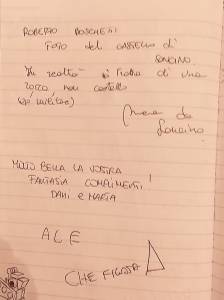 ROBERTO BOSCHETTI
FOTO del CASTELLO di
SONCINO.
In realtà si tratta di una
rocca, non castello
(più militare)
da
Soncino
MOLTO BELLA LA VOSTRA
FANTASIA COMPLIMENTI!
DANI e MARTA
ALE
CHE FIGATA